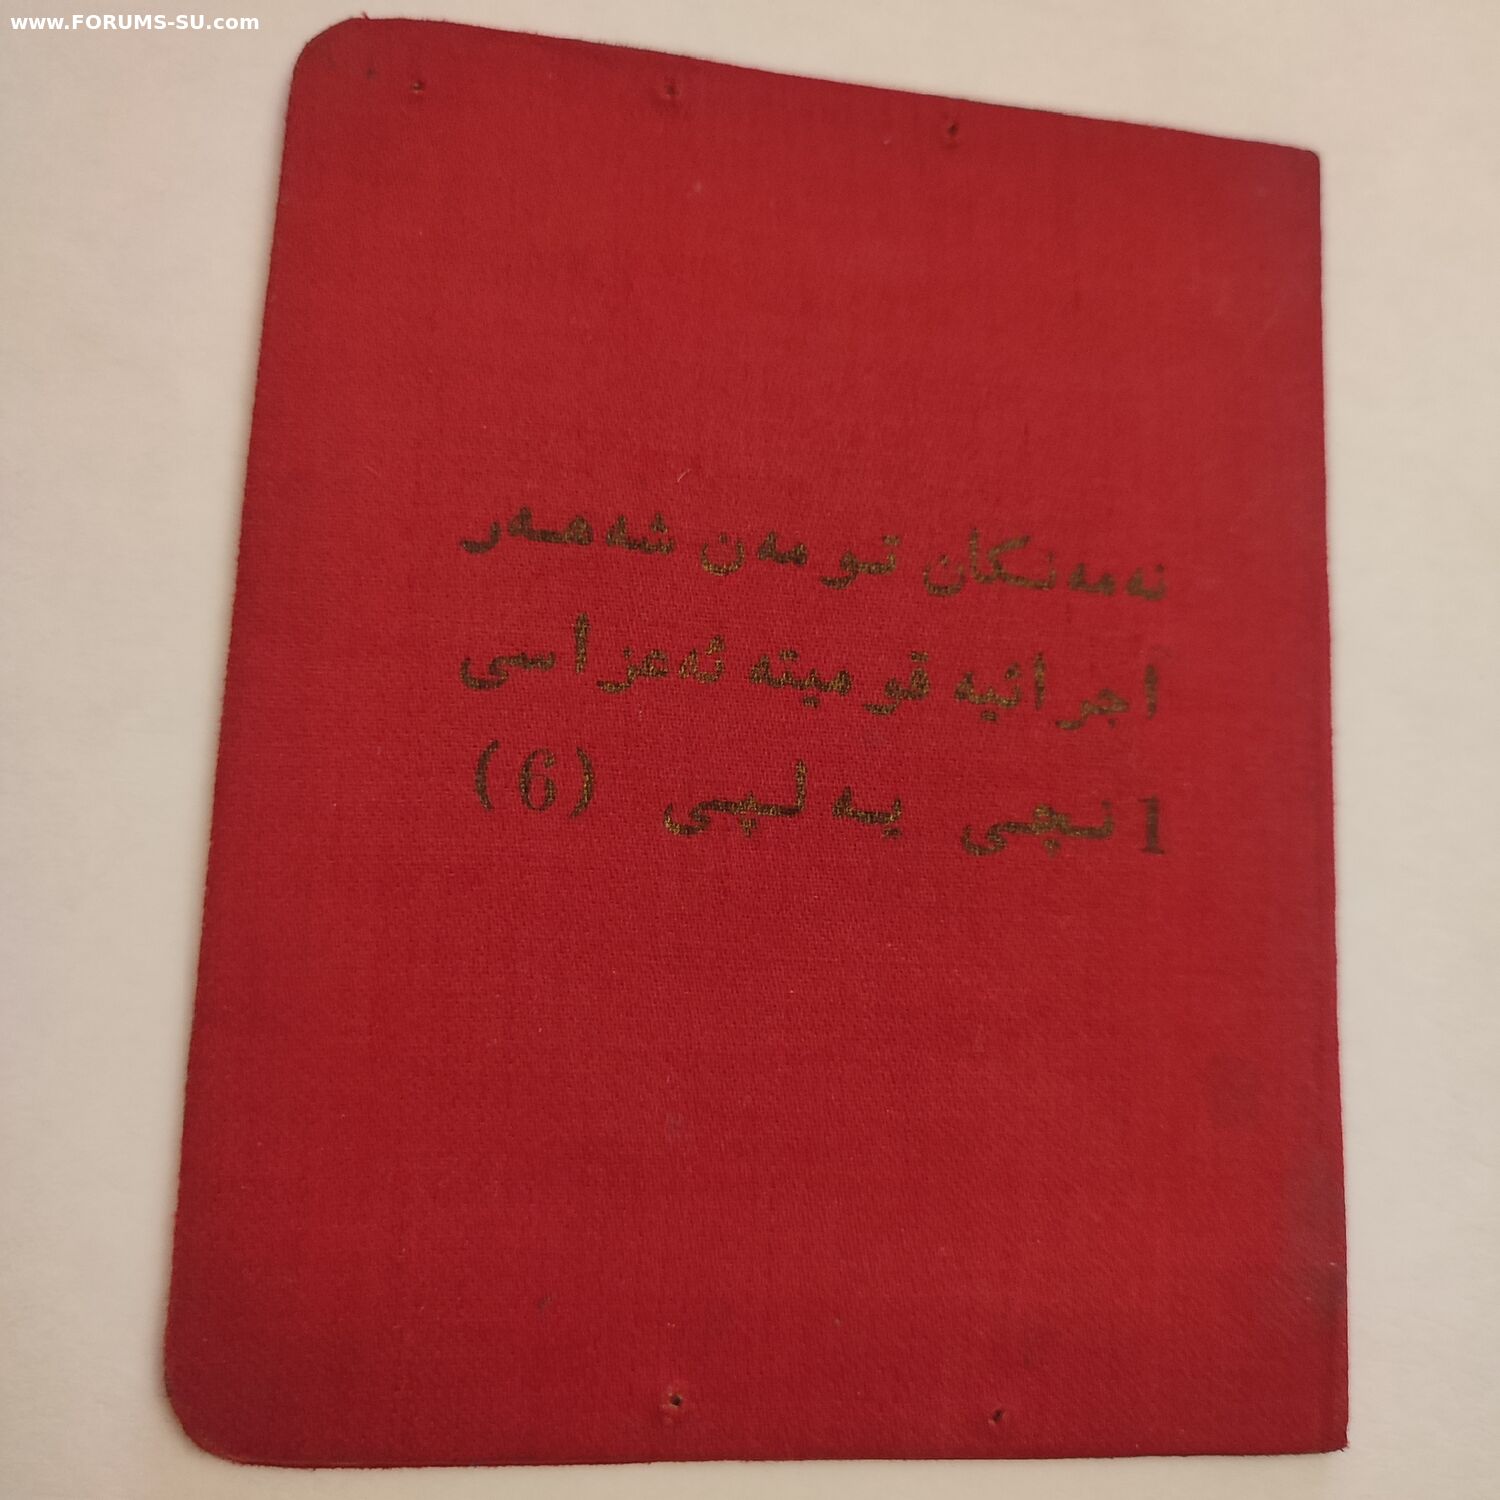 www.FORUMS-SU.com
نەمەنکان تومەن شەھەر
اجرائیە قومیتە ئەعزاسی
1 نچی یەلپی (6)